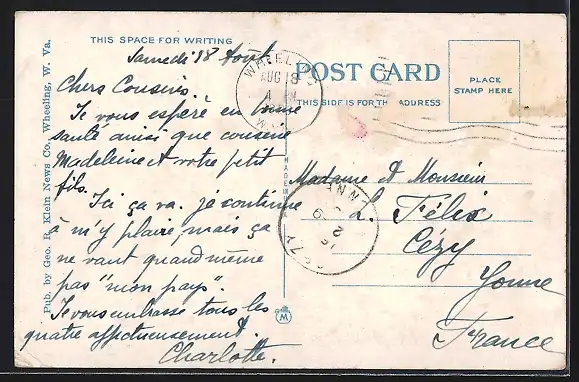 THIS SPACE FOR WRITING
Samedi 18 Août
Chers Cousins.
Je vous espère en bonne
santé ainsi que cousine
Madeleine et votre petit
fils.
Ici ça va. je continue
à m'y plaire, mais ça
ne vaut quand même
pas "mon pays".
Je vous embrasse tous les
quatre affectueusement.
Charlotte.
Pub. by Geo. R. Klein News Co., Wheeling, W. Va.
MADE IN
WHEELING
AUG 18
W.
POST CARD
THIS SIDE IS FOR THE ADDRESS
PLACE
STAMP HERE
Madame et Monsieur
L. Félix
Cézy
Yonne
France